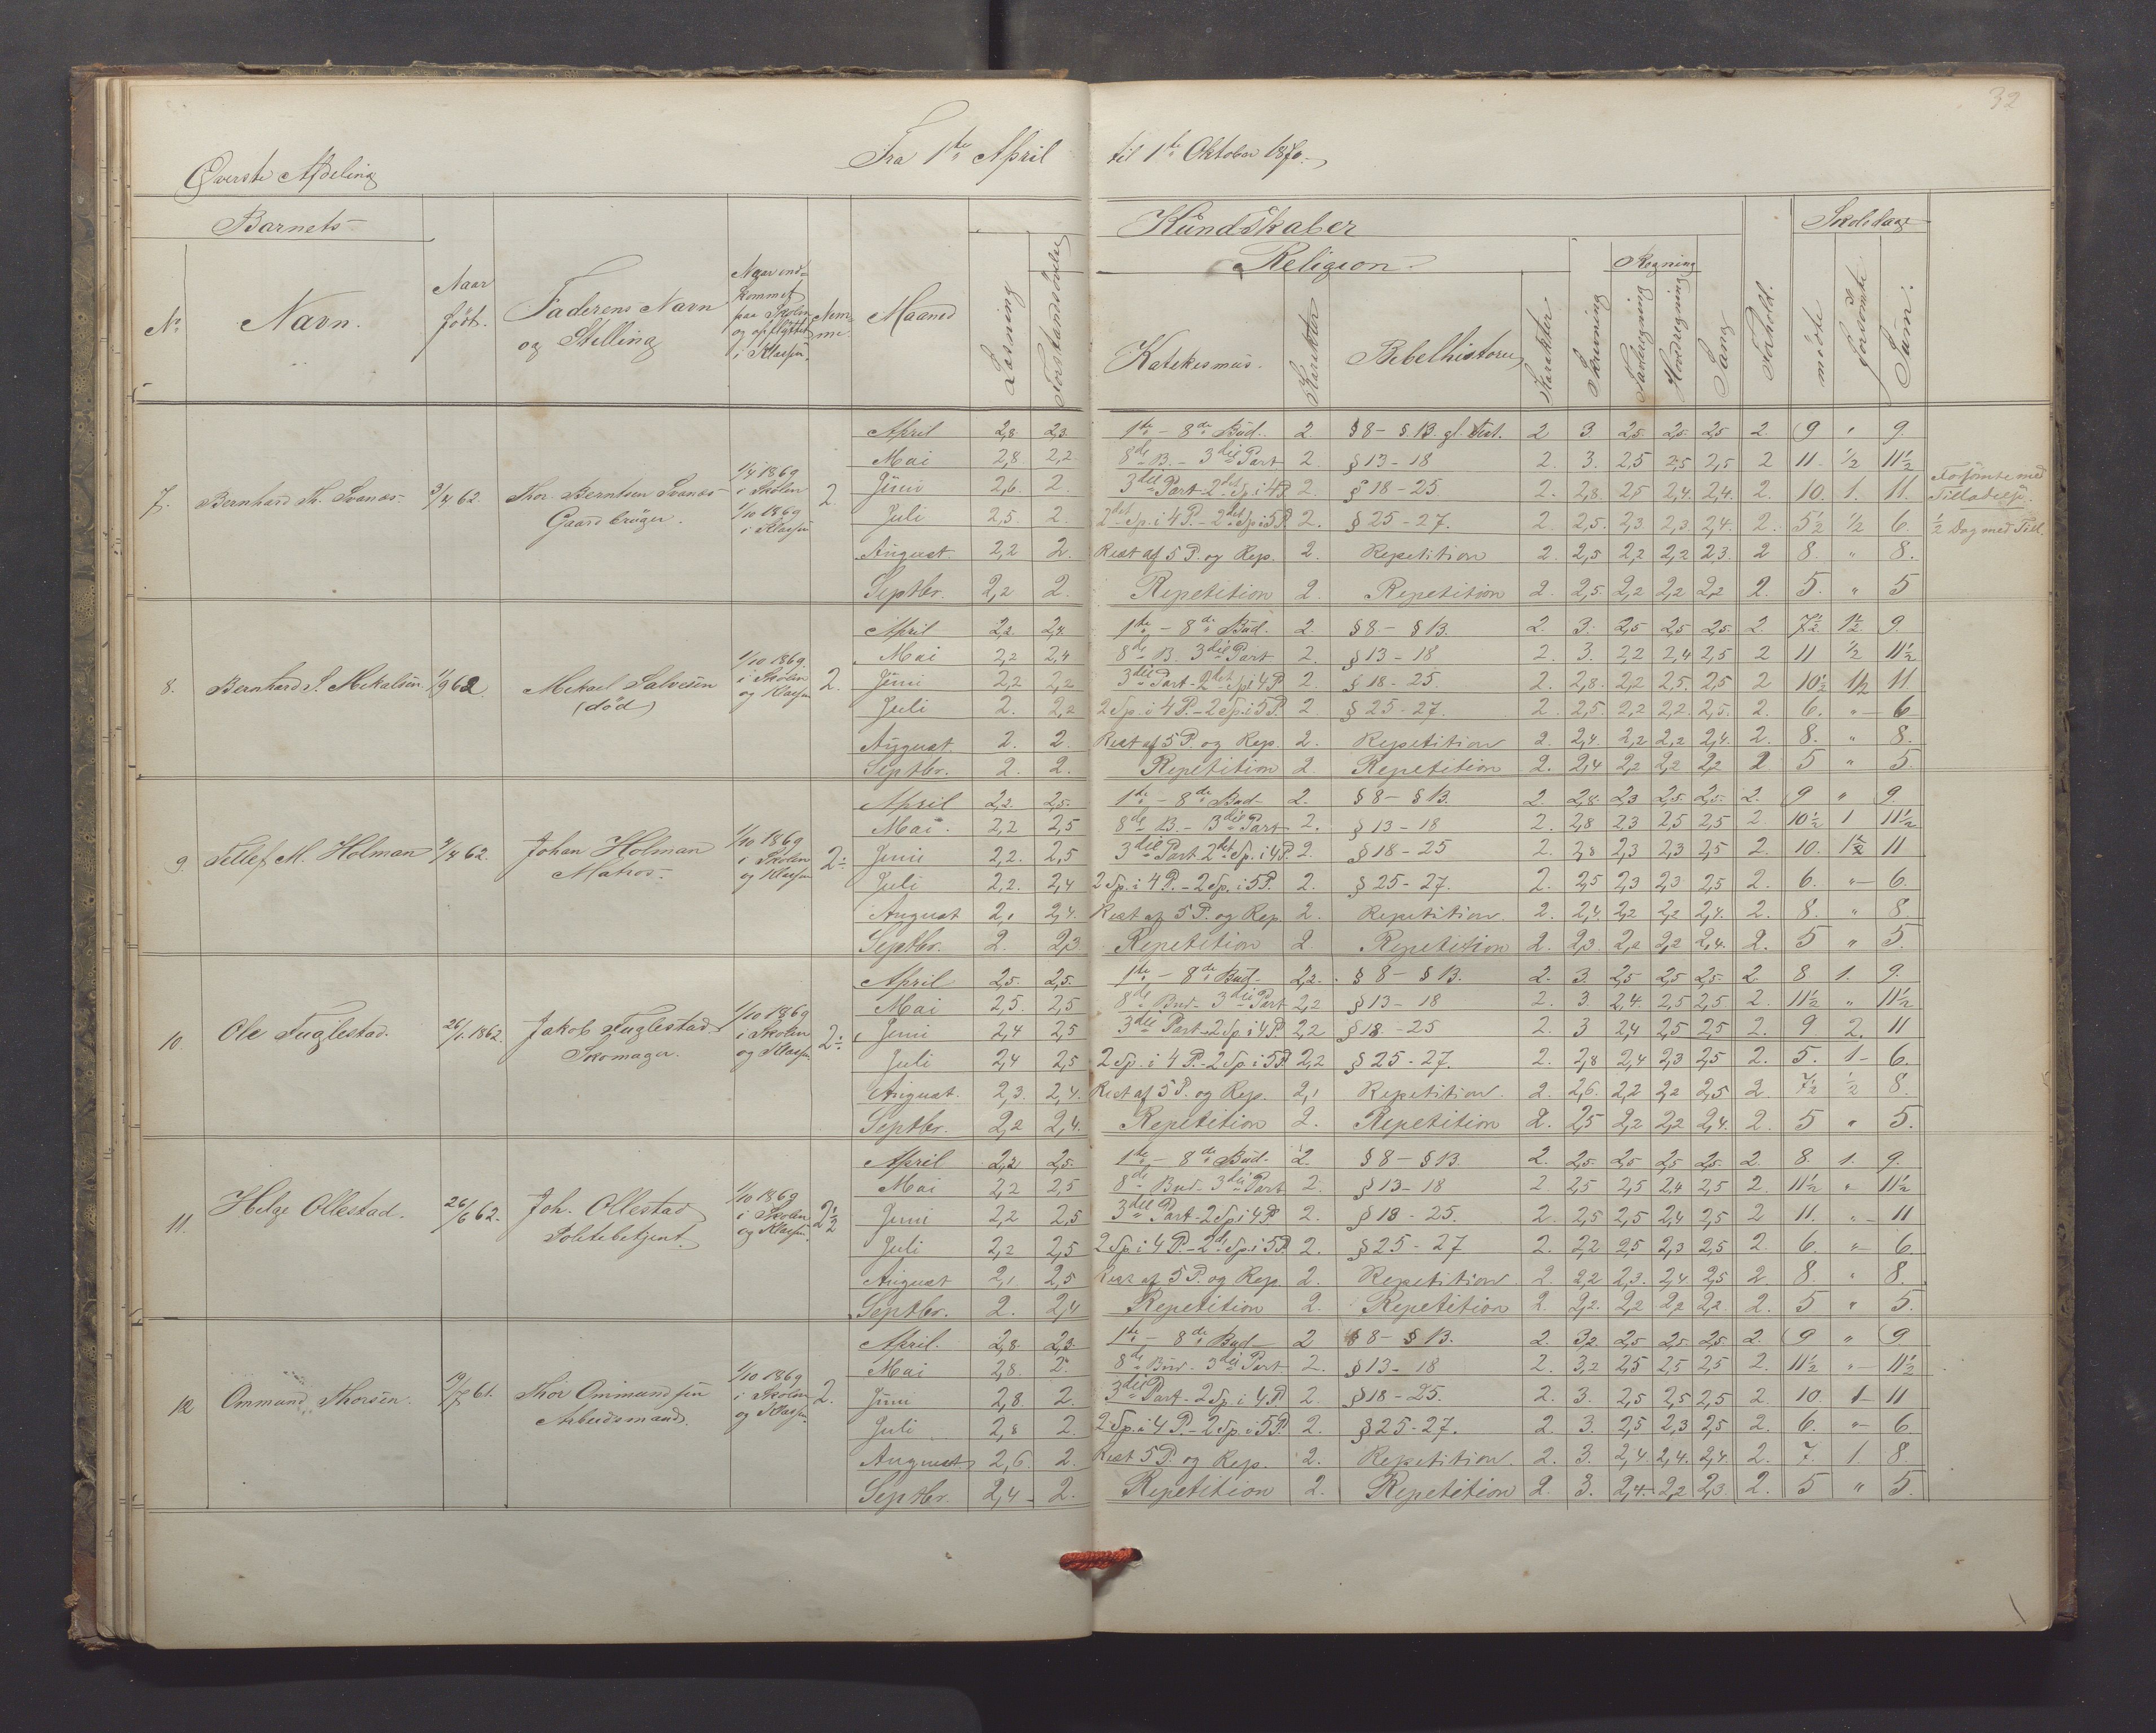 32
Fra 1ste April til 1ste Oktober 1870.
Øverste Afdeling
Barnets
No Navn. Naar født. Faderens Navn og Stilling Naar indkommet paa Skolen og opflyttet i Klassen. Nemme. Maaned Læsning Forstandsøvelse
Kundskaber
Religion.
Katekismus. Karakter Bibelhistorie Karakter Skrivning Regning Tavleregning Hovedregning Sang Forhold. Skoledage mødte forsømte Sum.
7. Bernhard Th. Svanæs 3/4 62. Thor Berntsen Svanæs Gaardbruger. 1/4 1869 i Skolen 1/10 1869 i Klassen 2.
April 2,8. 2,3. 1ste - 8de Bud. 2. § 8 - § 13. gl. Test. 2 3. 2,5. 2,5. 2,5 2. 9 " 9.
Mai 2,8. 2,2 8de B. - 3die Part 2. § 13 - 18 2. 3. 2,5 2,5 2,5 2 11. 1/2 11 1/2
Juni 2,6. 2. 3die Part - 2det Sp. i 4 P. 2. § 18 - 25 2. 2,8. 2,5 2,4. 2,4. 2. 10. 1. 11. Forsømte med Tilladelse.
Juli 2,5. 2. 2det Sp. i 4 P. - 2det Sp. i 5 P. 2. § 25 - 27. 2. 2,5. 2,3 2,3. 2,4. 2. 5 1/2 1/2 6. 1/2 Dag med Till.
August. 2,2 2. Rest af 5 P. og Rep. 2. Repetition 2. 2,5 2,2 2,2 2,3. 2 8. " 8.
Septbr. 2,2 2. Repetition 2. Repetition 2. 2,5. 2,2 2,2 2,2 2. 5. " 5
8. Bernhard S. Mikalsen. 1/9 62. Mikael Salvesen (død) 1/10 1869. i Skolen og Klassen 2.
April 2,2. 2,4. 1ste - 8de Bud. 2. § 8 - § 13. 2. 3. 2,5 2,5 2,5. 2. 7 1/2 1 1/2 9.
Mai 2,2 2,4 8de B. 3die Part 2. § 13 - 18 2. 3. 2,2 2,4 2,5 2 11 1/2 11 1/2
Juni 2,2 2,2 3die Part - 2det Sp. i 4 P. 2 § 18 - 25. 2. 2,8. 2,2 2,5. 2,5 2 10 1/2 1/2 11
Juli 2. 2,2 2 Sp. i 4 P. - 2 Sp. i 5 P. 2 § 25 - 27. 2. 2,5. 2,2 2,2. 2,5. 2. 6. " 6
August. 2. 2. Rest af 5 P. og Rep. 2. Repetition 2. 2,4. 2,2 2,2 2,4. 2. 8. " 8.
Septbr. 2. 2. Repetition 2 Repetition 2. 2,4 2,2 2,2 2,2 2 5 " 5.
9. Tellef M. Holman 9/4 62. Johan Holman Matros. 1/10 1869 i Skolen og Klassen 2÷
April 2,2. 2,5. 1ste - 8de Bud - 2. § 8 - § 13. 2. 2,8. 2,3 2,5. 2,5. 2. 9 " 9.
Mai. 2,2 2,5 8de B. - 3die Part 2. § 13 - 18 2. 2,8 2,3 2,5 2,5 2. 10 1/2 1 11 1/2
Juni 2,2. 2,5 3die Part. 2det Sp. i 4 P. 2. § 18 - 25 2. 2,8 2,3 2,3 2,5 2. 10. 1 11
Juli 2,2. 2,4 2 Sp. i 4 P. - 2 Sp. i 5 P. 2. § 25 - 27. 2. 2,5 2,3 2,3 2,5 2. 6. " 6.
August 2,1 2,4. Rest af 5 P. og Rep 2. Repetition. 2. 2,4. 2,2 2,2 2,4. 2. 8. " 8
Septbr. 2. 2,3 Repetition 2 Repetition 2. 2,3. 2,2 2,2 2,4. 2. 5 " 5.
10 Ole Fuglestad. 26/1. 1862. Jakob Fuglestad. Skomager. 1/10 1869 i Skolen og Klassen 2÷
April 2,5. 2,5. 1ste - 8de Bud - 2,2. § 8 - § 13. 2. 3. 2,5 2,5 2,5. 2 8 1. 9.
Mai 2,5. 2,5 8de Bud. 3die Part 2,2 § 13 - 18 2. 3. 2,4. 2,5 2,5 2. 11 1/2 " 11 1/2
Juni 2,4 2,5 3die Part - 2 Sp. i 4 P. 2,2 § 18 - 25 2. 3 2,4 2,5 2,5 2. 9 2. 11
Juli 2,4 2,5 2 Sp. i 4 P. - 2 Sp. i 5 P. 2,2 § 25 - 27. 2. 2,8 2,4 2,3 2,5 2. 5. 1 6.
August. 2,3. 2,4. Rest af 5 P. og Rep. 2,1 Repetition. 2. 2,6. 2,2 2,2 2,5 2 7 1/2 1/2 8.
Septbr. 2,2 2,4. Repetition 2. Repetition 2. 2,5 2,2 2,2 2,4. 2. 5 " 5.
11. Helge Ollestad. 26/6 62. Joh. Ollestad Politibetjent. 1/10 1869 i Skolen og Klassen. 2 1/2
April 2,2 2,5. 1ste - 8de Bud - 2. § 8 - § 13. 2. 2,5. 2,5 2,5 2,5. 2. 8. 1. 9.
Mai 2,2 2,5 8de Bud - 3die Part 2. § 13 - 18 2. 2,5 2,5 2,4 2,5 2. 11 1/2 " 11 1/2
Juni 2,2 2,5 3die Part - 2 Sp. i 4 P. 2. § 18 - 25. 2. 2,5 2,5 2,4 2,5 2 11. " 11
Juli 2,2 2,5 2 Sp. i 4 P. - 2de Sp. i 5 P. 2. § 25 - 27 2. 2,2 2,5 2,3 2,5 2. 6. " 6
August 2,1 2,5 Rest af 5 P. og Rep. 2. Repetition. 2. 2,2 2,3. 2,4 2,5 2 8. " 8.
Septbr. 2. 2,4 Repetition 2. Repetition 2. 2,2. 2,2 2,2 2,2. 2. 5 " 5.
12 Ommund Thorsen. /7 61. Thor Ommundsen Arbeidsmand. 1/10 1869 i Skolen og Klassen. 2.
April. 2,8. 2,3. 1ste - 8de Bud 2 § 8 - § 13. 2. 3,2. 2,5 2,5. 2,5. 2. 9 " 9.
Mai 2,8. 2. 8de Bud. 3die Part 2. § 13 - 18 2. 3,2 2,5 2,5 2,5 2. 11 1/2 " 11 1/2
Juni 2,8. 2. 3die Part - 2 Sp. i 4 P. 2 § 18 - 25. 2. 3. 2,5 2,5 2,5 2. 10. 1 11
Juli 2,8 2. 2 Sp. i 4 P. - 2 Sp. i 5 P. 2. § 25 - 27. 2. 3. 2,5 2,3 2,5 2. 6. " 6
August. 2,6. 2. Rest 5 P. og Rep. 2. Repetition. 2. 3. 2,4. 2,4. 2,4 2. 7. 1. 8.
Septbr. 2,4 2. Repetition 2. Repetition 2. 3. 2,4. 2,2 2,3. 2. 5 " 5.